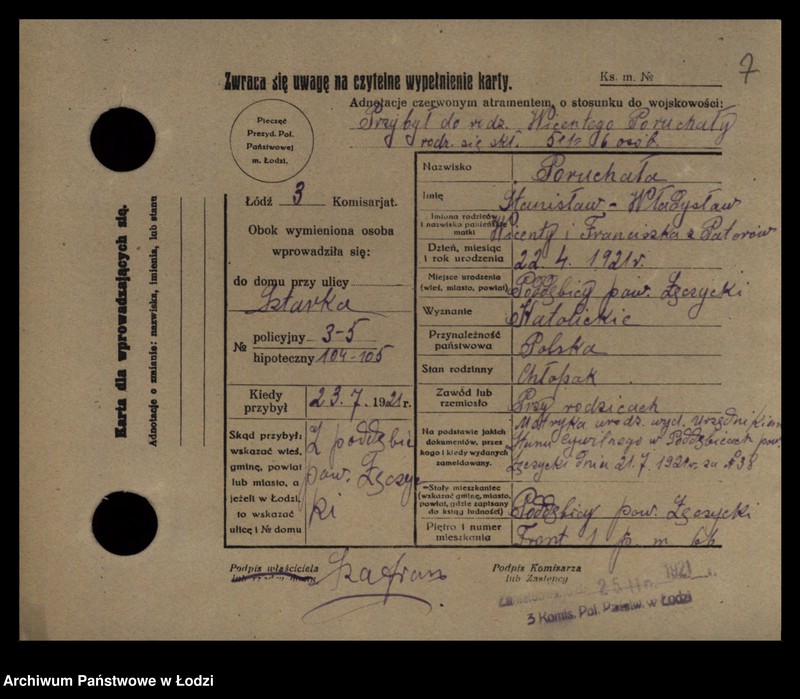 7
Zwraca się uwagę na czytelne wypełnienie karty.
Ks. m. №
Adnotacje czerwonym atramentem, o stosunku do wojskowości:
Przybył do rodz. Wicentego Poruchały
rodz. się skł. 5 i 1 = 6 osób
Pieczęć
Prezyd. Pol.
Państwowej
m. Łodzi.
Łódź 3 Komisarjat.
Obok wymieniona osoba
wprowadziła się:
do domu przy ulicy
Szlarka
№ policyjny 3-5
hipoteczny 104-105
Kiedy
przybył
23. 7. 1921 r.
Skąd przybył:
wskazać wieś,
gminę, powiat
lub miasto, a
jeżeli w Łodzi,
to wskazać
ulicę i № domu
Z poddębic
pow. Łęczyc
ki
Nazwisko
Poruchała
Imię
Stanisław - Władysław
Imiona rodziców
i nazwisko panieńskie
matki
Wicenty i Franciszka z Patorów
Dzień, miesiąc
i rok urodzenia
22 4. 1921 r.
Miejsce urodzenia
(wieś, miasto, powiat)
Poddębicy pow. Łęczycki
Wyznanie
Katolickie
Przynależność
państwowa
Polska
Stan rodzinny
Chłopak
Zawód lub
rzemiosło
Przy rodzicach
Na podstawie jakich
dokumentów, przez
kogo i kiedy wydanych
zameldowany.
Metryka urodz. wyd. Urzędnikiem
Stanu Cywilnego w Poddębicach pow.
Łęczycki dnia 21. 7. 1921 r. za № 38
Stały mieszkaniec
(wskazać gminę, miasto,
powiat, gdzie zapisany
do ksiąg ludności)
Poddębicy pow. Łęczycki
Piętro i numer
mieszkania
Front 1 p. m. 66
Podpis właściciela
Szafran
Podpis Komisarza
lub Zastępcy
25 1921 r.
3 Komis. Pol. Państw. w Łodzi
Karta dla wprowadzających się.
Adnotacje o zmianie: nazwiska, imienia, lub stanu
Archiwum Państwowe w Łodzi